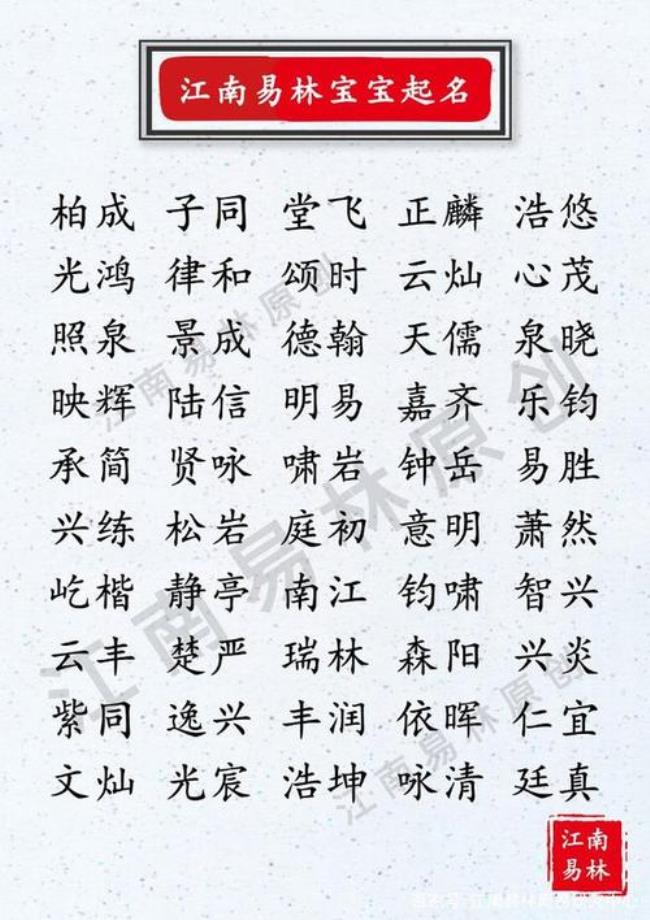 江南易林宝宝起名
柏成 子同 堂飞 正麟 浩悠
光鸿 律和 颂时 云灿 心茂
照泉 景成 德翰 天儒 泉晓
映辉 陆信 明易 嘉齐 乐钧
承简 贤咏 啸岩 钟岳 易胜
兴练 松岩 庭初 意明 萧然
屹楷 静亭 南江 钧啸 智兴
云丰 楚严 瑞林 森阳 兴炎
紫同 逸兴 丰润 依晖 仁宜
文灿 光宸 浩坤 咏清 廷真
江南易林原创
江南易林原创
江南易林原创
江南
易林